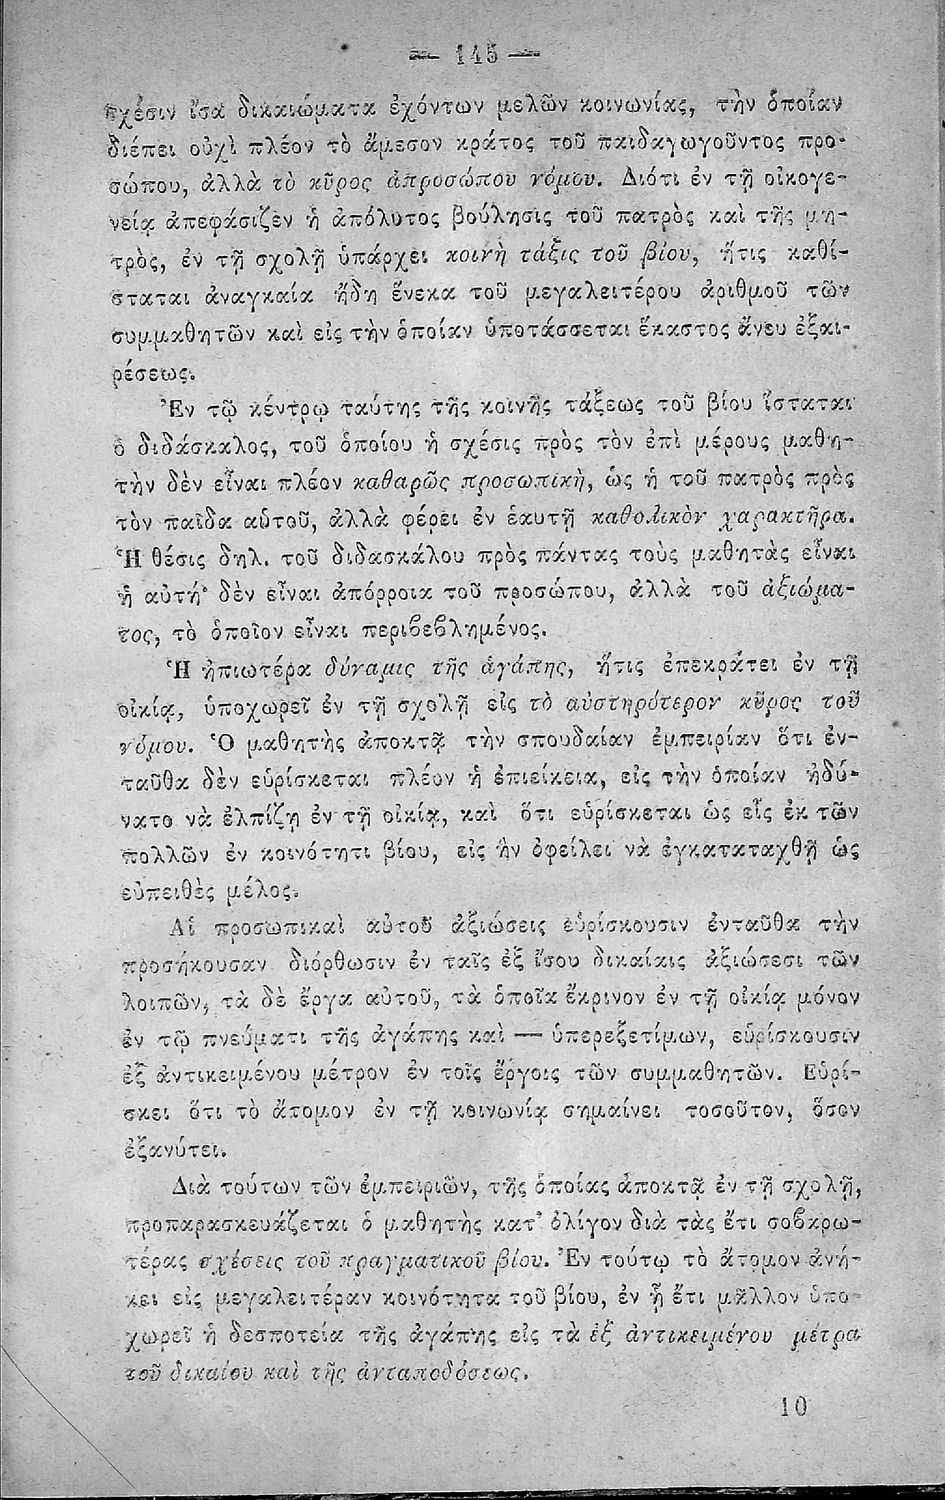 — 145 —
σχέσιν ἴσα δικαιώματα ἐχόντων μελῶν κοινωνίας, τὴν ὁποίαν
διέπει οὐχὶ πλέον τὸ ἄμεσον κράτος τοῦ παιδαγωγοῦντος προ-
σώπου, ἀλλὰ τὸ κῦρος ἀπροσώπου νόμου. Διότι ἐν τῇ οἰκογε-
νείᾳ ἀπεφάσιζεν ἡ ἀπόλυτος βούλησις τοῦ πατρὸς καὶ τῆς μη-
τρὸς, ἐν τῇ σχολῇ ὑπάρχει κοινὴ τάξις τοῦ βίου, ἥτις καθί-
σταται ἀναγκαία ἤδη ἕνεκα τοῦ μεγαλειτέρου ἀριθμοῦ τῶν
συμμαθητῶν καὶ εἰς τὴν ὁποίαν ὑποτάσσεται ἕκαστος ἄνευ ἐξαι-
ρέσεως.
Ἐν τῷ κέντρῳ ταύτης τῆς κοινῆς τάξεως τοῦ βίου ἵσταται
ὁ διδάσκαλος, τοῦ ὁποίου ἡ σχέσις πρὸς τὸν ἐπὶ μέρους μαθη-
τὴν δὲν εἶναι πλέον καθαρῶς προσωπικὴ, ὡς ἡ τοῦ πατρὸς πρὸς
τὸν παῖδα αὑτοῦ, ἀλλὰ φέρει ἐν ἑαυτῇ καθολικὸν χαρακτῆρα.
Ἡ θέσις δηλ. τοῦ διδασκάλου πρὸς πάντας τοὺς μαθητὰς εἶναι
ἡ αὐτή· δὲν εἶναι ἀπόρροια τοῦ προσώπου, ἀλλὰ τοῦ ἀξιώμα-
τος, τὸ ὁποῖον εἶναι περιβεβλημένος.
Ἡ ἠπιωτέρα δύναμις τῆς ἀγάπης, ἥτις ἐπεκράτει ἐν τῇ
οἰκίᾳ, ὑποχωρεῖ ἐν τῇ σχολῇ εἰς τὸ αὐστηρότερον κῦρος τοῦ
νόμου. Ὁ μαθητὴς ἀποκτᾷ τὴν σπουδαίαν ἐμπειρίαν ὅτι ἐν-
ταῦθα δὲν εὑρίσκεται πλέον ἡ ἐπιείκεια, εἰς τὴν ὁποίαν ἠδύ-
νατο νὰ ἐλπίζῃ ἐν τῇ οἰκίᾳ, καὶ ὅτι εὑρίσκεται ὡς εἷς ἐκ τῶν
πολλῶν ἐν κοινότητι βίου, εἰς ἣν ὀφείλει νὰ ἐγκαταταχθῇ ὡς
εὐπειθὲς μέλος.
Αἱ προσωπικαὶ αὐτοῦ ἀξιώσεις εὑρίσκουσιν ἐνταῦθα τὴν
προσήκουσαν διόρθωσιν ἐν ταῖς ἐξ ἴσου δικαίαις ἀξιώσεσι τῶν
λοιπῶν, τὰ δὲ ἔργα αὐτοῦ, τὰ ὁποῖα ἔκρινον ἐν τῇ οἰκίᾳ μόνον
ἐν τῷ πνεύματι τῆς ἀγάπης καὶ — ὑπερεξετίμων, εὑρίσκουσιν
ἐξ ἀντικειμένου μέτρον ἐν τοῖς ἔργοις τῶν συμμαθητῶν. Εὑρί-
σκει ὅτι τὸ ἄτομον ἐν τῇ κοινωνίᾳ σημαίνει τοσοῦτον, ὅσον
ἐξανύτει.
Διὰ τούτων τῶν ἐμπειριῶν, τῆς ὁποίας ἀποκτᾷ ἐν τῇ σχολῇ,
προπαρασκευάζεται ὁ μαθητὴς κατ' ὀλίγον διὰ τὰς ἔτι σοβαρω-
τέρας σχέσεις τοῦ πραγματικοῦ βίου. Ἐν τούτῳ τὸ ἄτομον ἀνή-
κει εἰς μεγαλειτέραν κοινότητα τοῦ βίου, ἐν ᾗ ἔτι μᾶλλον ὑπο-
χωρεῖ ἡ δεσποτεία τῆς ἀγάπης εἰς τὰ ἐξ ἀντικειμένου μέτρα
τοῦ δικαίου καὶ τῆς ἀνταποδόσεως.
10